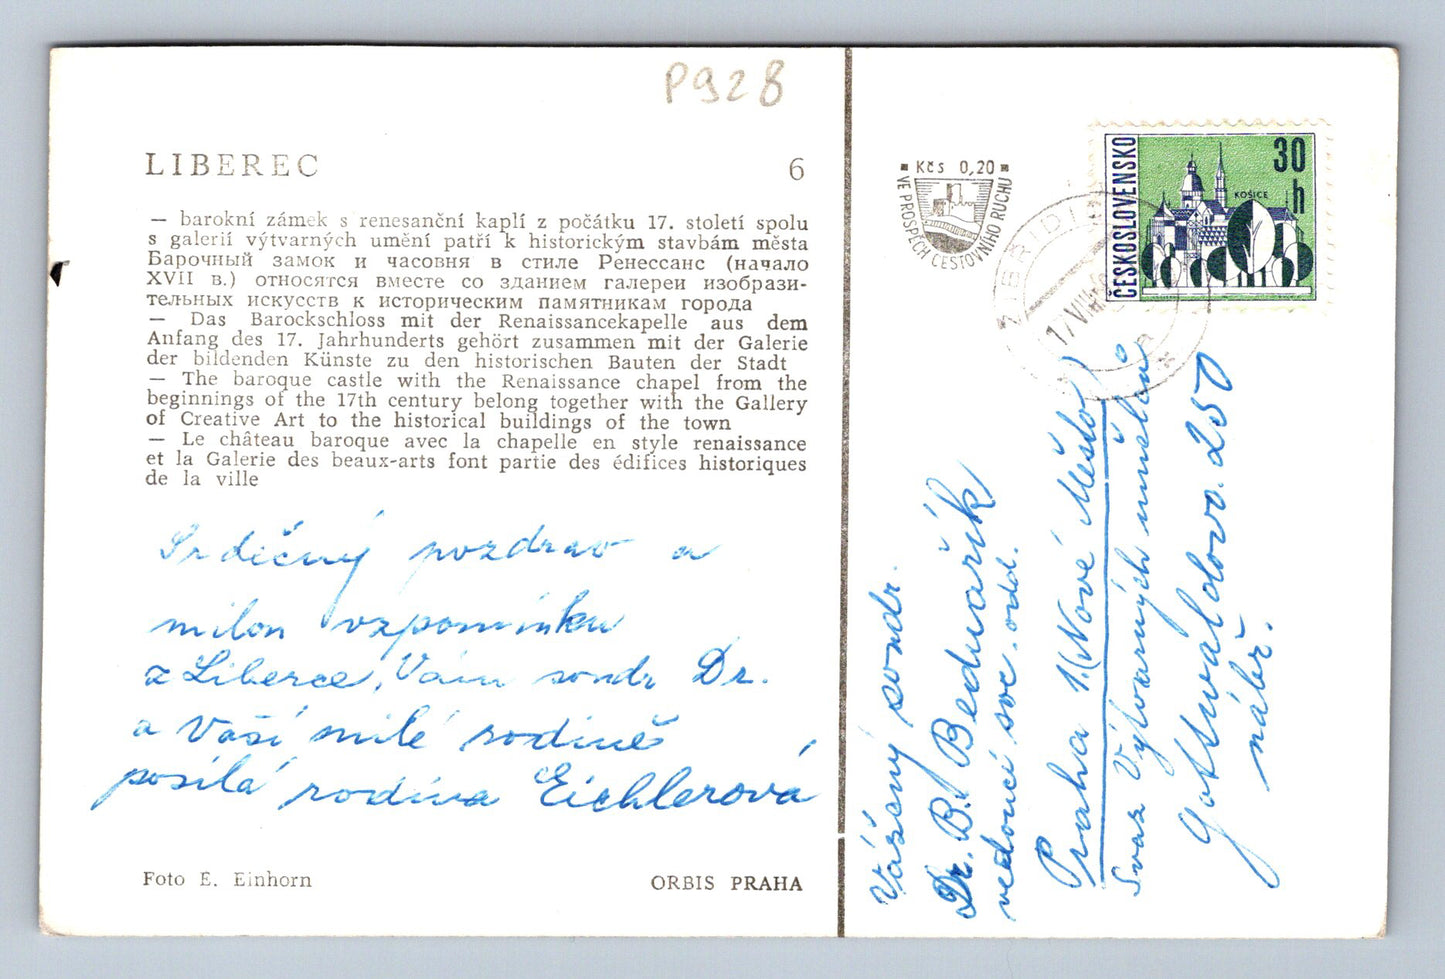 P928
LIBEREC
6
— barokní zámek s renesanční kaplí z počátku 17. století spolu
s galerií výtvarných umění patří k historickým stavbám města
Барочный замок и часовня в стиле Ренессанс (начало
XVII в.) относятся вместе со зданием галереи изобрази-
тельных искусств к историческим памятникам города
— Das Barockschloss mit der Renaissancekapelle aus dem
Anfang des 17. Jahrhunderts gehört zusammen mit der Galerie
der bildenden Künste zu den historischen Bauten der Stadt
— The baroque castle with the Renaissance chapel from the
beginnings of the 17th century belong together with the Gallery
of Creative Art to the historical buildings of the town
— Le château baroque avec la chapelle en style renaissance
et la Galerie des beaux-arts font partie des édifices historiques
de la ville
Srdečný pozdrav a
milou vzpomínku
z Liberce, Vám soudr Dr.
a Vaší milé rodině
posílá rodina Eichlerová
Foto E. Einhorn
ORBIS PRAHA
Kčs 0,20
VE PROSPĚCH CESTOVNÍHO RUCHU
ČESKOSLOVENSKO
30
h
KOŠICE
Vážený soudr.
Dr. B. Bednařík
vedoucí soc. odd.
Praha 1. (Nové Město)
Svaz Výtvarných umělců
Gottwaldovo. 250
nábř.